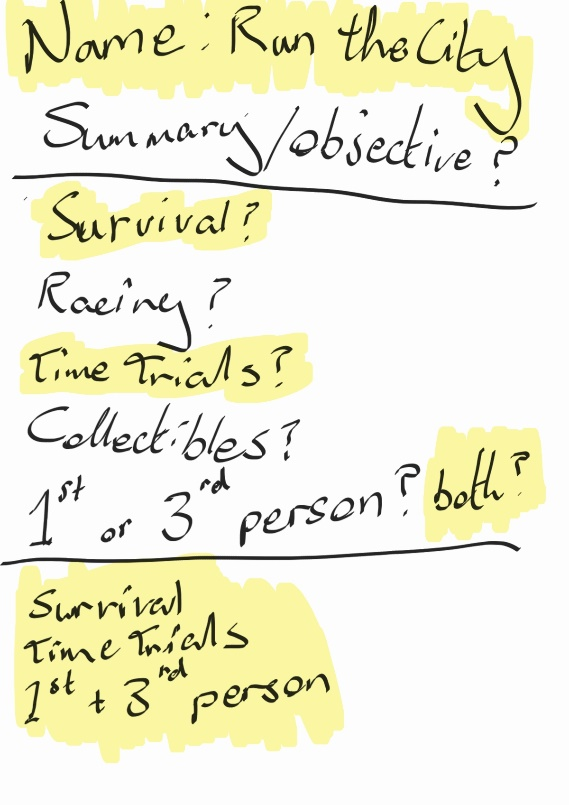 Name: Run the City
Summary/objective?
Survival?
Racing?
Time Trials?
Collectibles?
1st or 3rd person? both?
Survival
Time Trials
1st + 3rd person